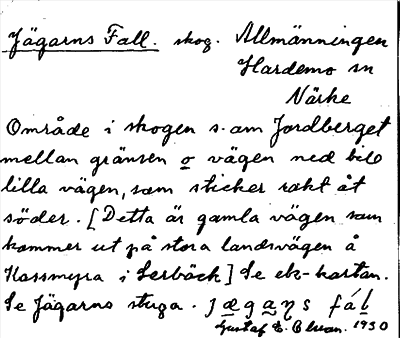 Jägarns Fall. skog. Allmänningen
Hardemo sn
Närke
Område i skogen s. om Jordberget
mellan gränsen o vägen ned
lilla vägen, som sticker rakt åt
söder. [Detta är gamla vägen som
kommer ut på stora landsvägen å
Hassmyra i Lerbäck] Se ek-kartan.
Se Jägarns stuga. jægaηs fál
Gustaf E. 1930